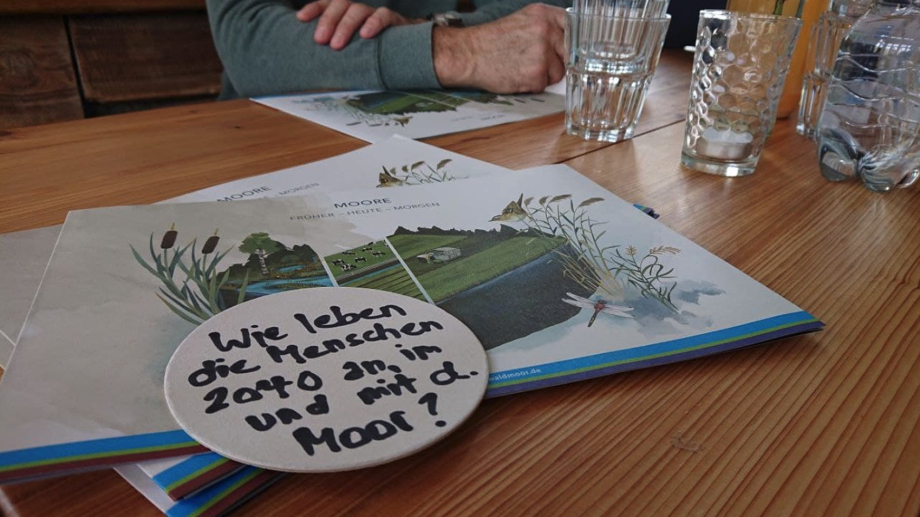 MOORE
MORGEN
MOORE
FRÜHER – HEUTE – MORGEN
waldmoor.de
Wie leben
die Menschen
2040 an, im
und mit d.
Moor?